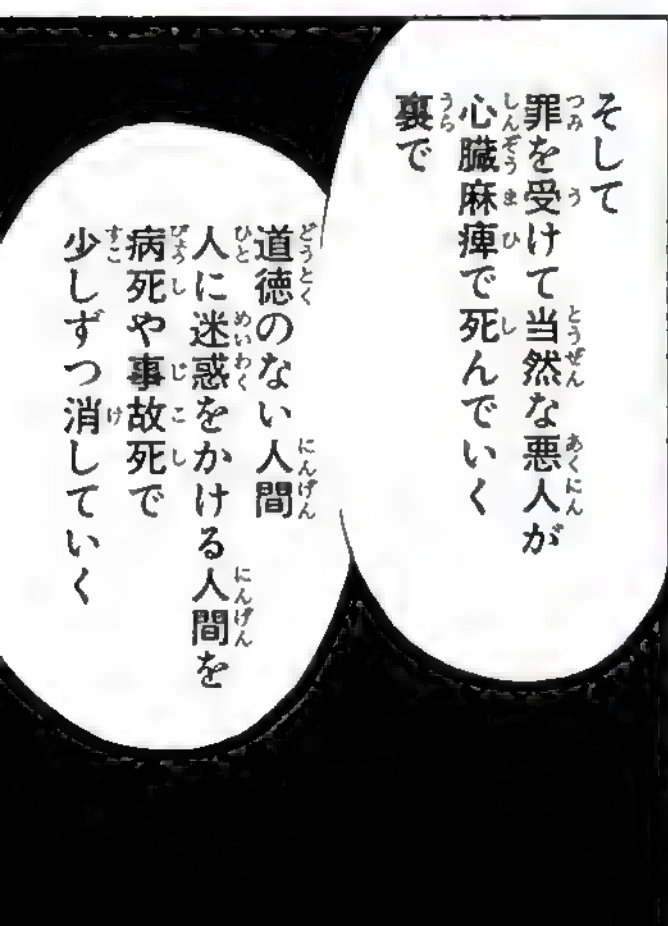 そして
罪を受けて当然な悪人が
心臓麻痺で死んでいく
裏で
道徳のない人間
人に迷惑をかける人間を
病死や事故死で
少しずつ消していく